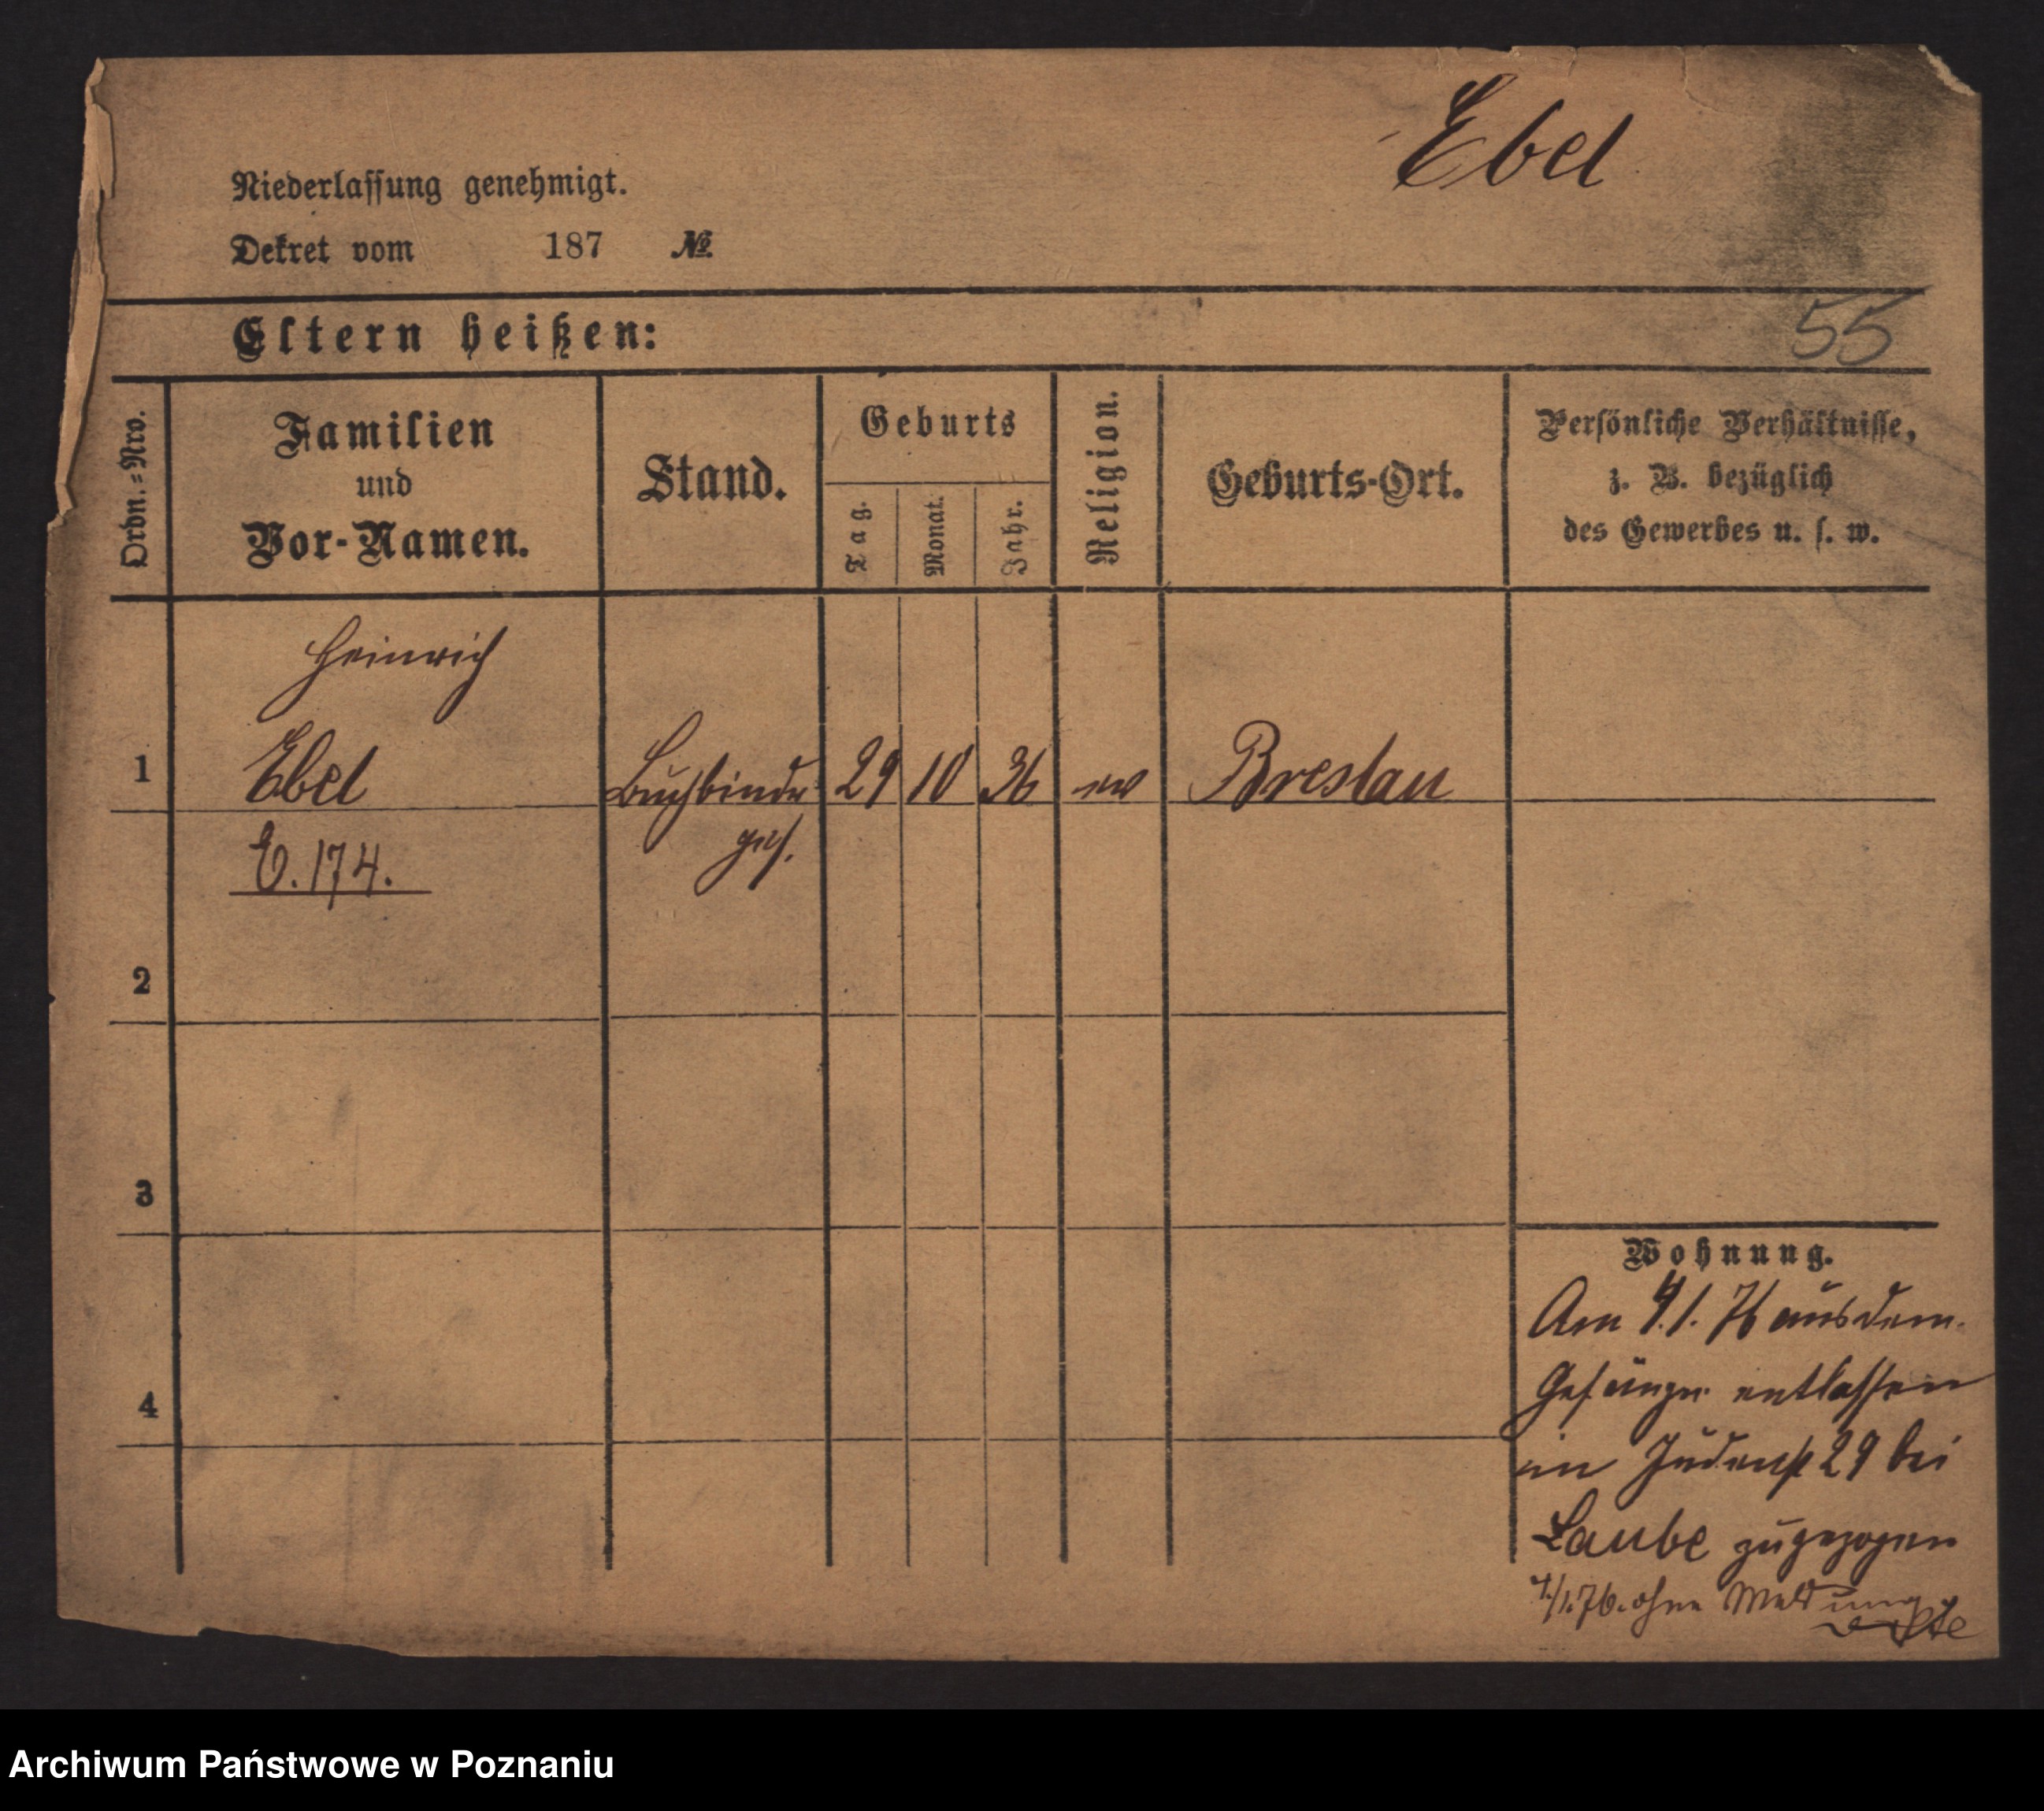 Ebel
Niederlassung genehmigt.
Dekret vom 187 №
Eltern heißen:
55
Ordn.=Nro.
Familien
und
Vor-Namen.
Stand.
Geburts
Tag.
Monat.
Jahr.
Religion.
Geburts-Ort.
Persönliche Verhältnisse,
z. B. bezüglich
des Gewerbes u. s. w.
Heinrich
1 Ebel Buchbinder 29 10 36 ev Breslau
E. 174. ges.
2
3
4
Wohnung.
Am 4.1.76 aus dem
Gefängn. entlassen
in Judenst 29 bei
Laube zugezogen
4/1.76. ohne Meldung
Archiwum Państwowe w Poznaniu